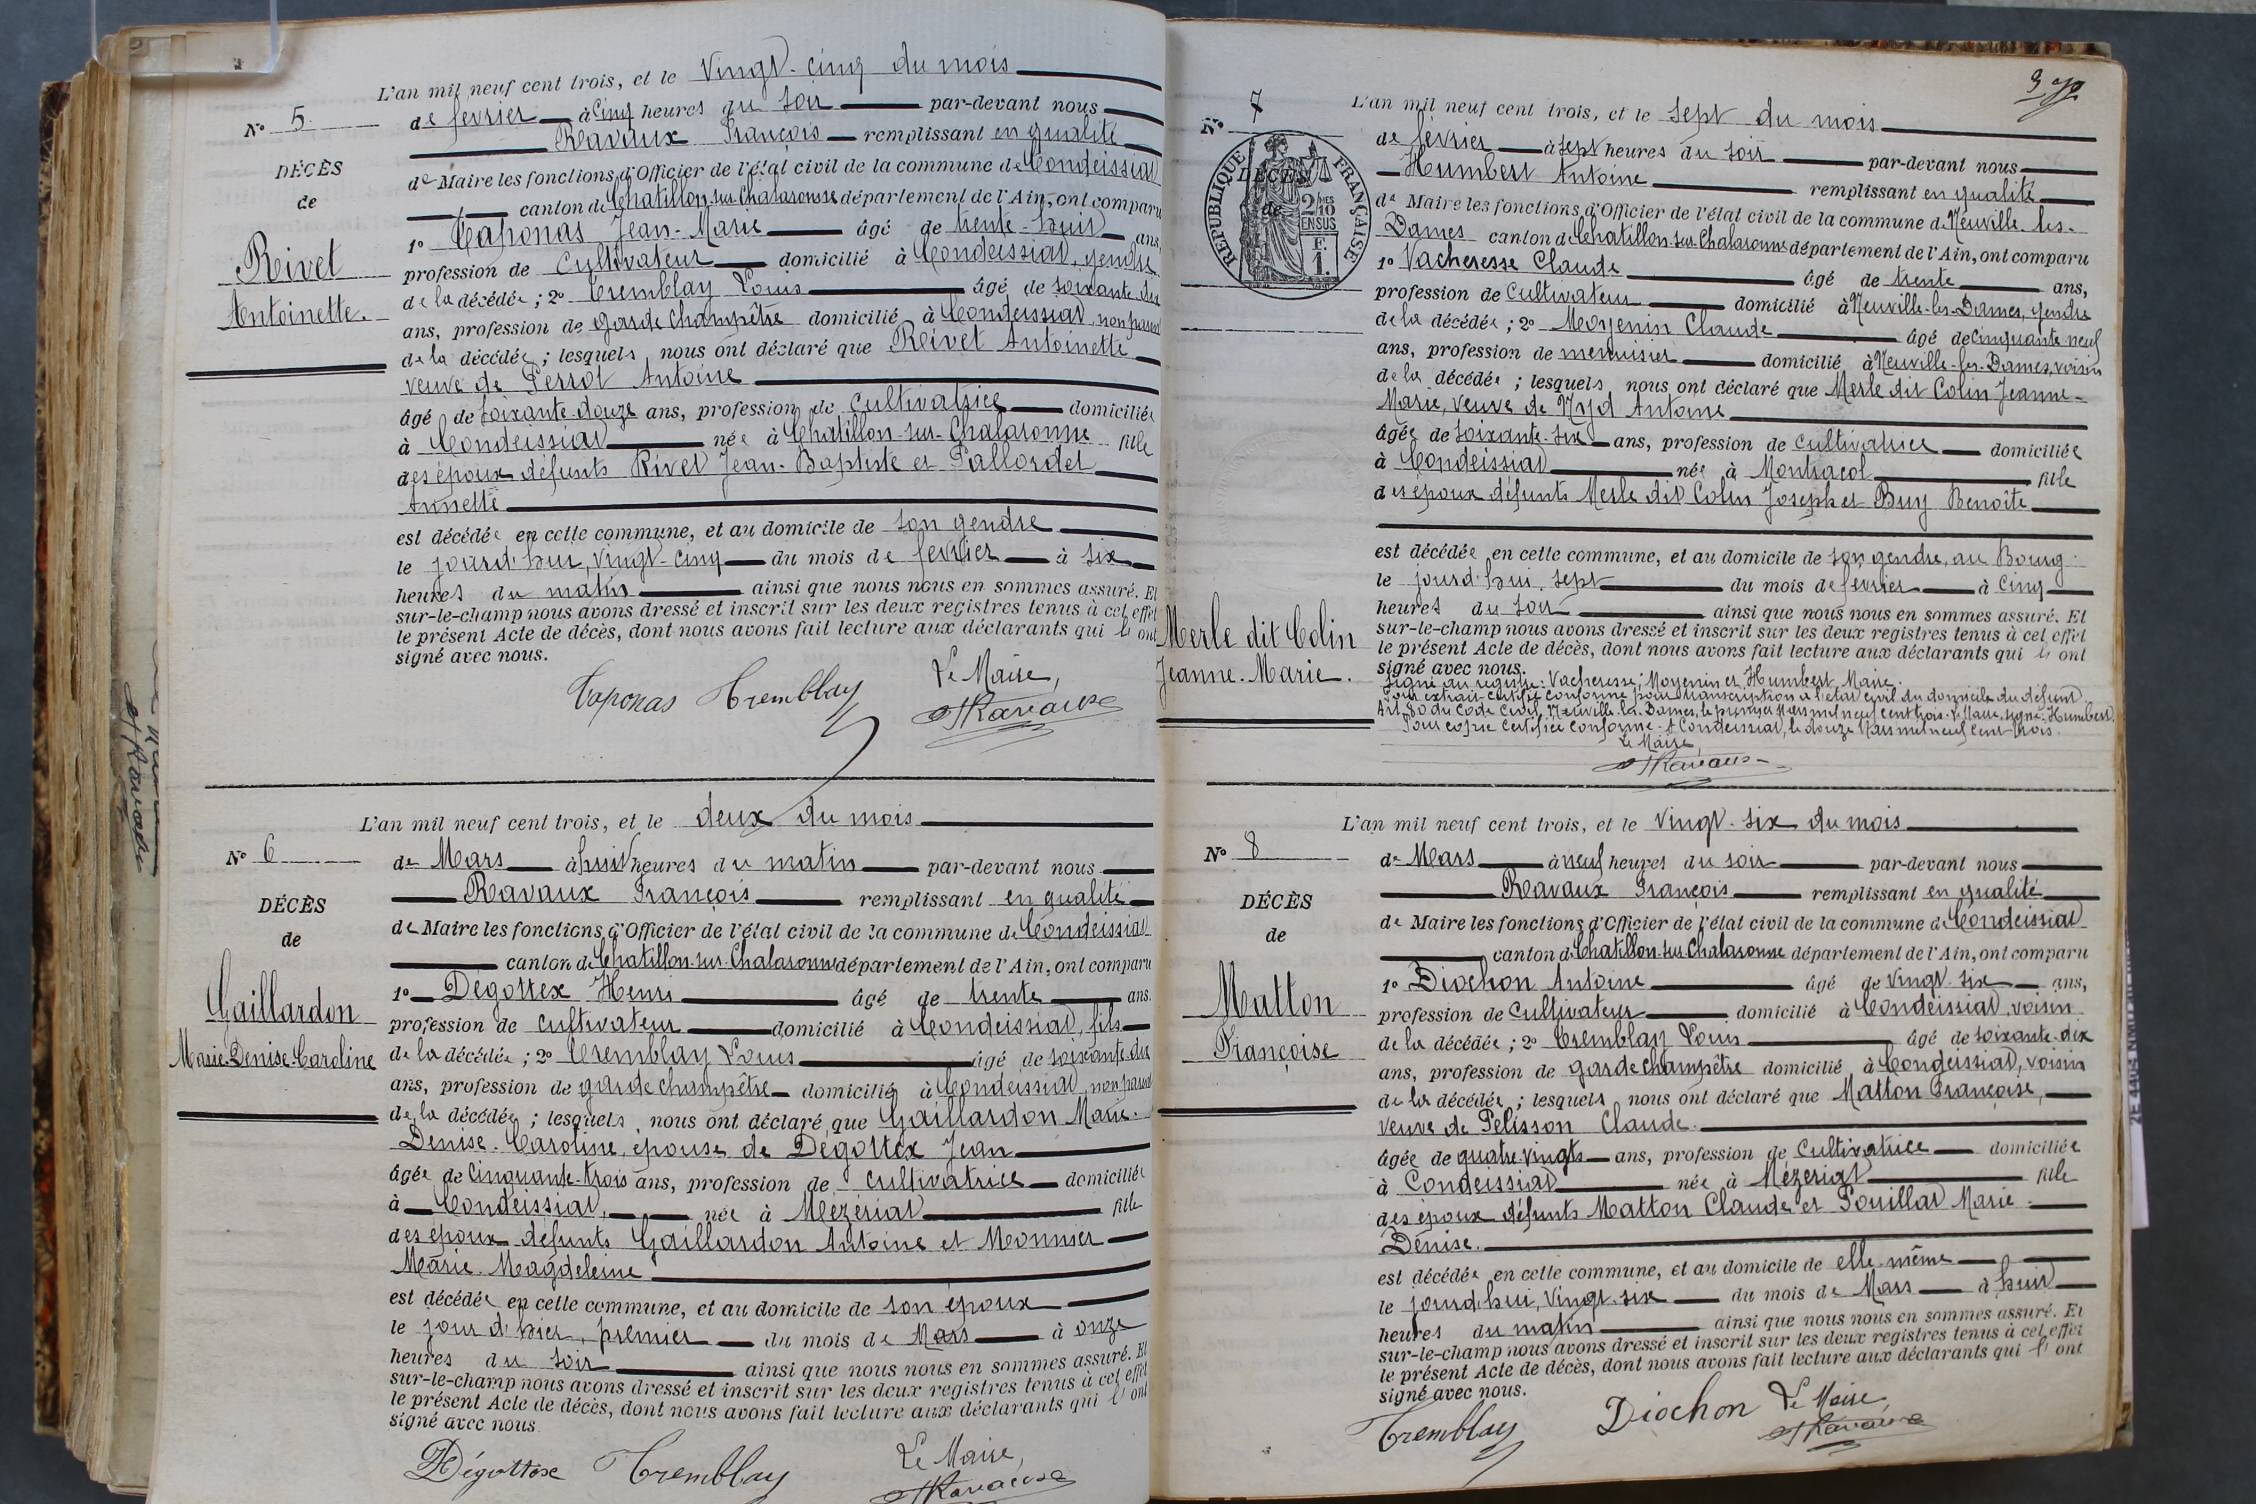 L'an mil neuf cent trois, et le vingt-cinq du mois
N° 5
de février à cinq heures du soir par-devant nous
Ravaux François remplissant en qualité
DÉCÈS
de Maire les fonctions d'Officier de l'état civil de la commune de Condeissiat
de
canton de Chatillon-sur-Chalaronne département de l'Ain, ont comparu
1° Taponas Jean-Marie âgé de trente-huit ans,
Rivet
profession de cultivateur domicilié à Condeissiat, gendre
Antoinette.
de la décédée ; 2° Tremblay Louis âgé de soixante-dix
ans, profession de garde champêtre domicilié à Condeissiat, non parent
de la décédée ; lesquels nous ont déclaré que Rivet Antoinette
veuve de Perrot Antoine
âgé de soixante-douze ans, profession de cultivatrice domiciliée
à Condeissiat née à Chatillon-sur-Chalaronne fille
des époux défunts Rivet Jean-Baptiste et Pallordet
Annette
est décédée en cette commune, et au domicile de son gendre
le jourd'hui, vingt-cinq du mois de février à six
heures du matin ainsi que nous nous en sommes assuré. Et
sur-le-champ nous avons dressé et inscrit sur les deux registres tenus à cet effet
le présent Acte de décès, dont nous avons fait lecture aux déclarants qui l'ont
signé avec nous.
Taponas Tremblay Le Maire,
Ravaux
L'an mil neuf cent trois, et le deux du mois
N° 6
de Mars à huit heures du matin par-devant nous
Ravaux François remplissant en qualité
DÉCÈS
de Maire les fonctions d'Officier de l'état civil de la commune de Condeissiat
de
canton de Chatillon-sur-Chalaronne département de l'Ain, ont comparu
1° Dégottex Henri âgé de trente ans.
Gaillardon
profession de cultivateur domicilié à Condeissiat, fils
Marie-Denise-Caroline
de la décédée ; 2° Tremblay Louis âgé de soixante-dix
ans, profession de garde champêtre domicilié à Condeissiat, non parent
de la décédée ; lesquels nous ont déclaré que Gaillardon Marie-
Denise-Caroline, épouse de Dégottex Jean
âgée de cinquante-trois ans, profession de cultivatrice domiciliée
à Condeissiat, née à Mézériat fille
des époux défunts Gaillardon Antoine et Monnier
Marie-Magdeleine
est décédée en cette commune, et au domicile de son époux
le jour d'hier, premier du mois de Mars à onze
heures du soir ainsi que nous nous en sommes assuré. Et
sur-le-champ nous avons dressé et inscrit sur les deux registres tenus à cet effet
le présent Acte de décès, dont nous avons fait lecture aux déclarants qui l'ont
signé avec nous
Dégottex Tremblay Le Maire,
Ravaux
3
L'an mil neuf cent trois, et le sept du mois
N° 7
de février à sept heures du soir par-devant nous
Humbert Antoine remplissant en qualité
RÉPUBLIQUE FRANÇAISE
DÉCÈS
de
2/10 MES
EN SUS
F.
1.
de Maire les fonctions d'Officier de l'état civil de la commune de Neuville-les-
Dames canton de Chatillon-sur-Chalaronne département de l'Ain, ont comparu
1° Vacheresse Claude âgé de trente ans,
profession de cultivateur domicilié à Neuville-les-Dames, gendre
de la décédée ; 2° Moyenin Claude âgé de cinquante-neuf
ans, profession de menuisier domicilié à Neuville-les-Dames, voisin
de la décédée ; lesquels nous ont déclaré que Merle dit Colin Jeanne-
Marie, veuve de Nyd Antoine
âgée de soixante-six ans, profession de cultivatrice domiciliée
à Condeissiat née à Montracol fille
des époux défunts Merle dit Colin Joseph et Buy Benoîte
est décédée en cette commune, et au domicile de son gendre, au Bourg
le jourd'hui sept du mois de février à cinq
heures du soir ainsi que nous nous en sommes assuré. Et
sur-le-champ nous avons dressé et inscrit sur les deux registres tenus à cet effet
Merle dit Colin
le présent Acte de décès, dont nous avons fait lecture aux déclarants qui l'ont
Jeanne-Marie.
signé avec nous.
Signé au registre: Vacheresse, Moyenin et Humbert, Maire.
Pour extrait certifié conforme pour transcription à l'état civil du domicile du défunt
Art. 80 du Code Civil, Neuville-les-Dames, le premier Mars mil neuf cent trois. Le Maire, signé: Humbert.
Pour copie certifiée conforme. A Condeissiat, le douze Mars mil neuf cent trois.
Le Maire,
Ravaux
L'an mil neuf cent trois, et le vingt-six du mois
N° 8
de Mars à neuf heures du soir par-devant nous
Ravaux François remplissant en qualité
DÉCÈS
de Maire les fonctions d'Officier de l'état civil de la commune de Condeissiat
de
canton de Chatillon-sur-Chalaronne département de l'Ain, ont comparu
1° Diochon Antoine âgé de vingt-six ans,
Matton
profession de cultivateur domicilié à Condeissiat, voisin
Françoise
de la décédée ; 2° Tremblay Louis âgé de soixante-dix
ans, profession de garde champêtre domicilié à Condeissiat, voisin
de la décédée ; lesquels nous ont déclaré que Matton Françoise,
veuve de Pelisson Claude.
âgée de quatre-vingts ans, profession de cultivatrice domiciliée
à Condeissiat née à Mézériat fille
des époux défunts Matton Claude et Pouillat Marie-
Denise.
est décédée en cette commune, et au domicile de elle-même
le jourd'hui, vingt-six du mois de Mars à huit
heures du matin ainsi que nous nous en sommes assuré. Et
sur-le-champ nous avons dressé et inscrit sur les deux registres tenus à cet effet
le présent Acte de décès, dont nous avons fait lecture aux déclarants qui l'ont
signé avec nous.
Tremblay Diochon Le Maire,
Ravaux